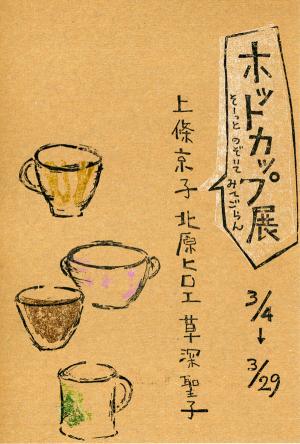 ホットカップ展
そーっと のぞいて みてごらん
3/4→3/29
上條京子 北原ヒロエ 草深聖子